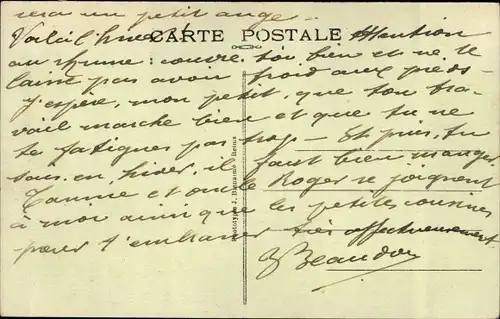 sera un petit ange.
Voilà l'hiver! CARTE POSTALE Attention
au rhume : couvre-toi bien et ne te
laisse pas avoir froid aux pieds -
J'espère, mon petit, que ton tra-
vail marche bien et que tu ne
te fatigues pas trop - Et puis, tu
sais, en hiver, il faut bien manger
Tannie et oncle Roger se joignent
à moi ainsi que les petites cousines
pour t'embrasser très affectueusement.
Beaudou
Phototypie J. Bienaimé, Reims